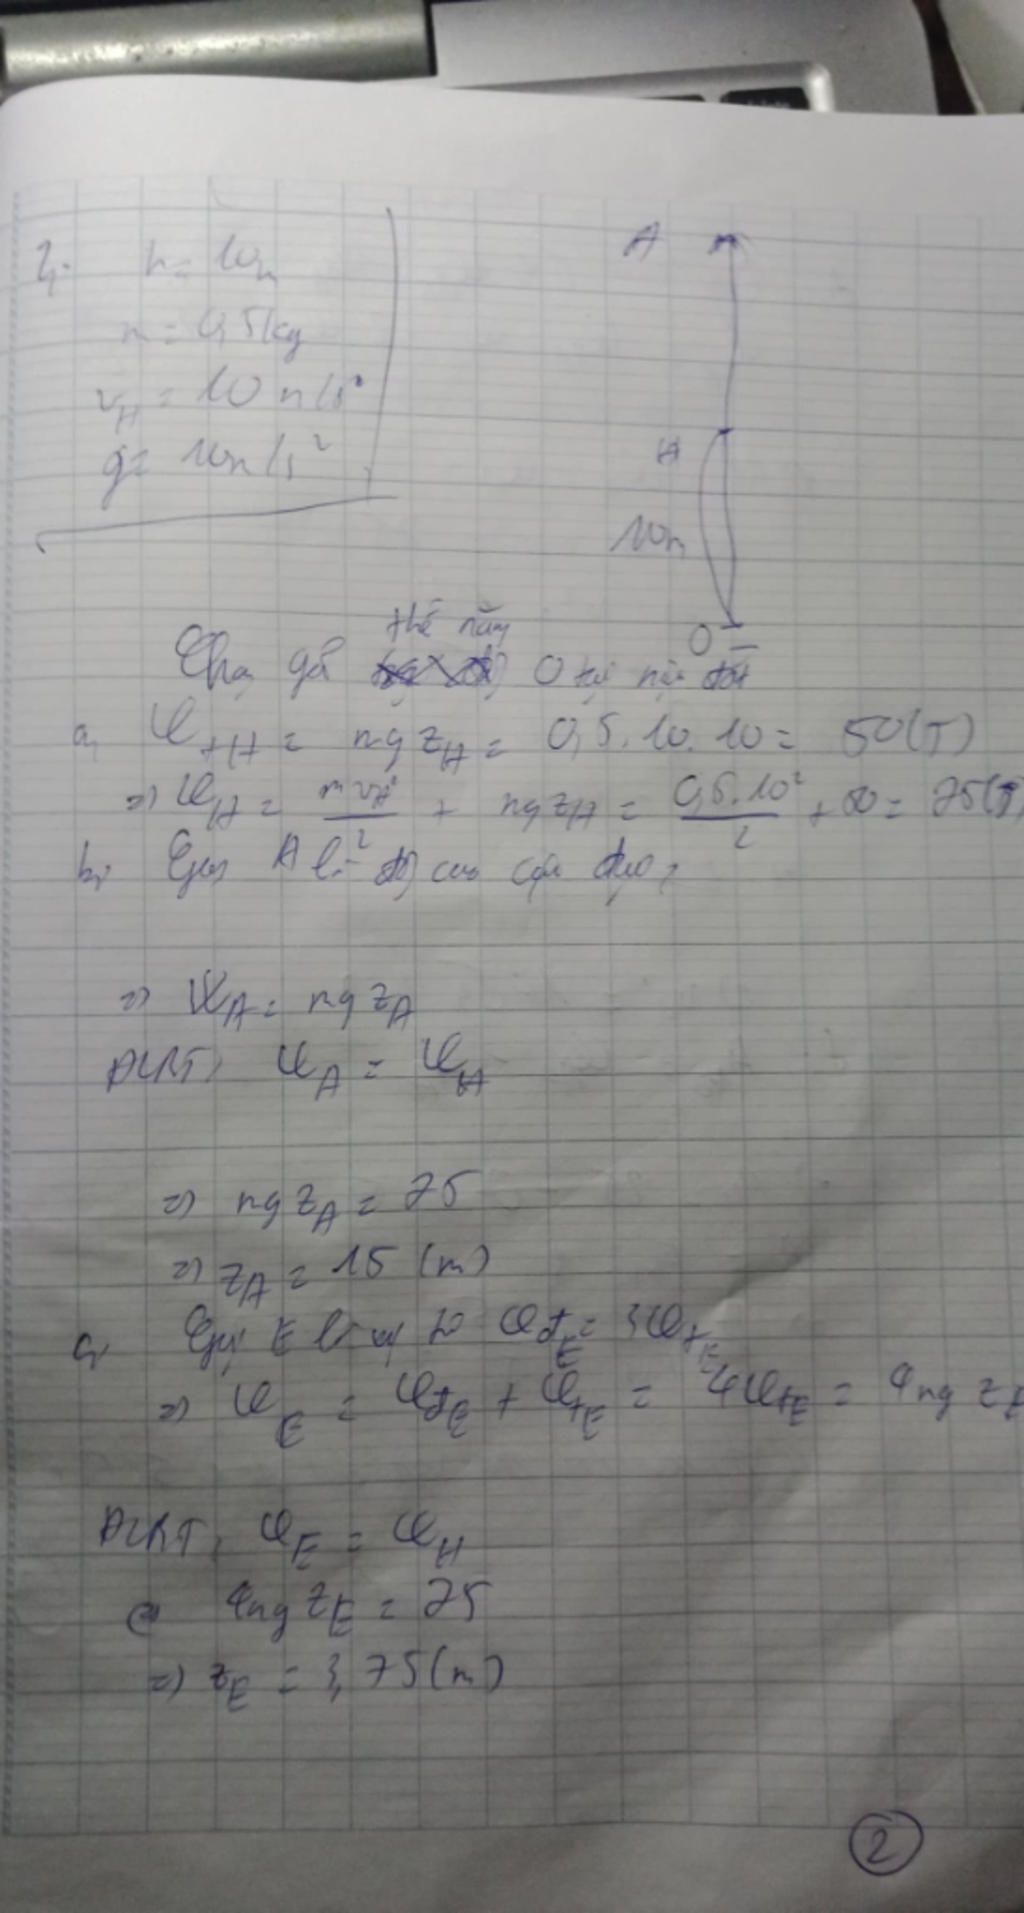 2. h = 10m
m = 0,5kg
v_H = 10 m/s
g = 10m/s²
A
H
10m
O
thế năng
Chọn gốc O tại mặt đất
a, W_tH = mg z_H = 0,5.10.10 = 50(J)
=> W_H = mv_H²/2 + mg z_H = 0,5.10²/2 + 50 = 75(J)
b, Gọi A là độ cao cực đại
=> W_A = mg z_A
ĐLBT: W_A = W_H
=> mg z_A = 75
=> z_A = 15 (m)
c, Gọi E là W_đE = 3W_tE
=> W_E = W_đE + W_tE = 4W_tE = 4mg z_E
ĐLBT: W_E = W_H
4mg z_E = 75
=> z_E = 3,75(m)
2